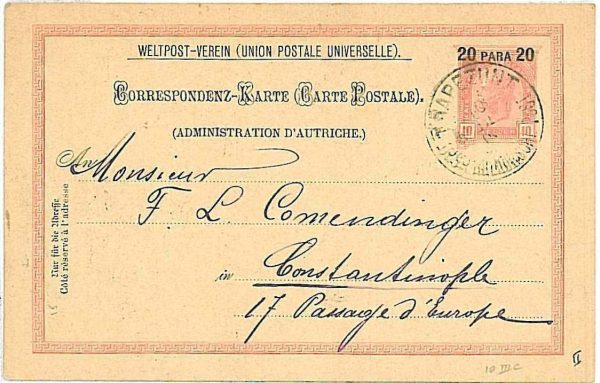 WELTPOST-VEREIN (UNION POSTALE UNIVERSELLE).
20 PARA 20
CORRESPONDENZ-KARTE (CARTE POSTALE).
(ADMINISTRATION D'AUTRICHE.)
TRAPEZUNT
10
10
An Monsieur
F. L Comendinger
in Constantinople
17 Passage d'Europe
Nur für die Adresse
Côté réservé à l'adresse
10 III C
II